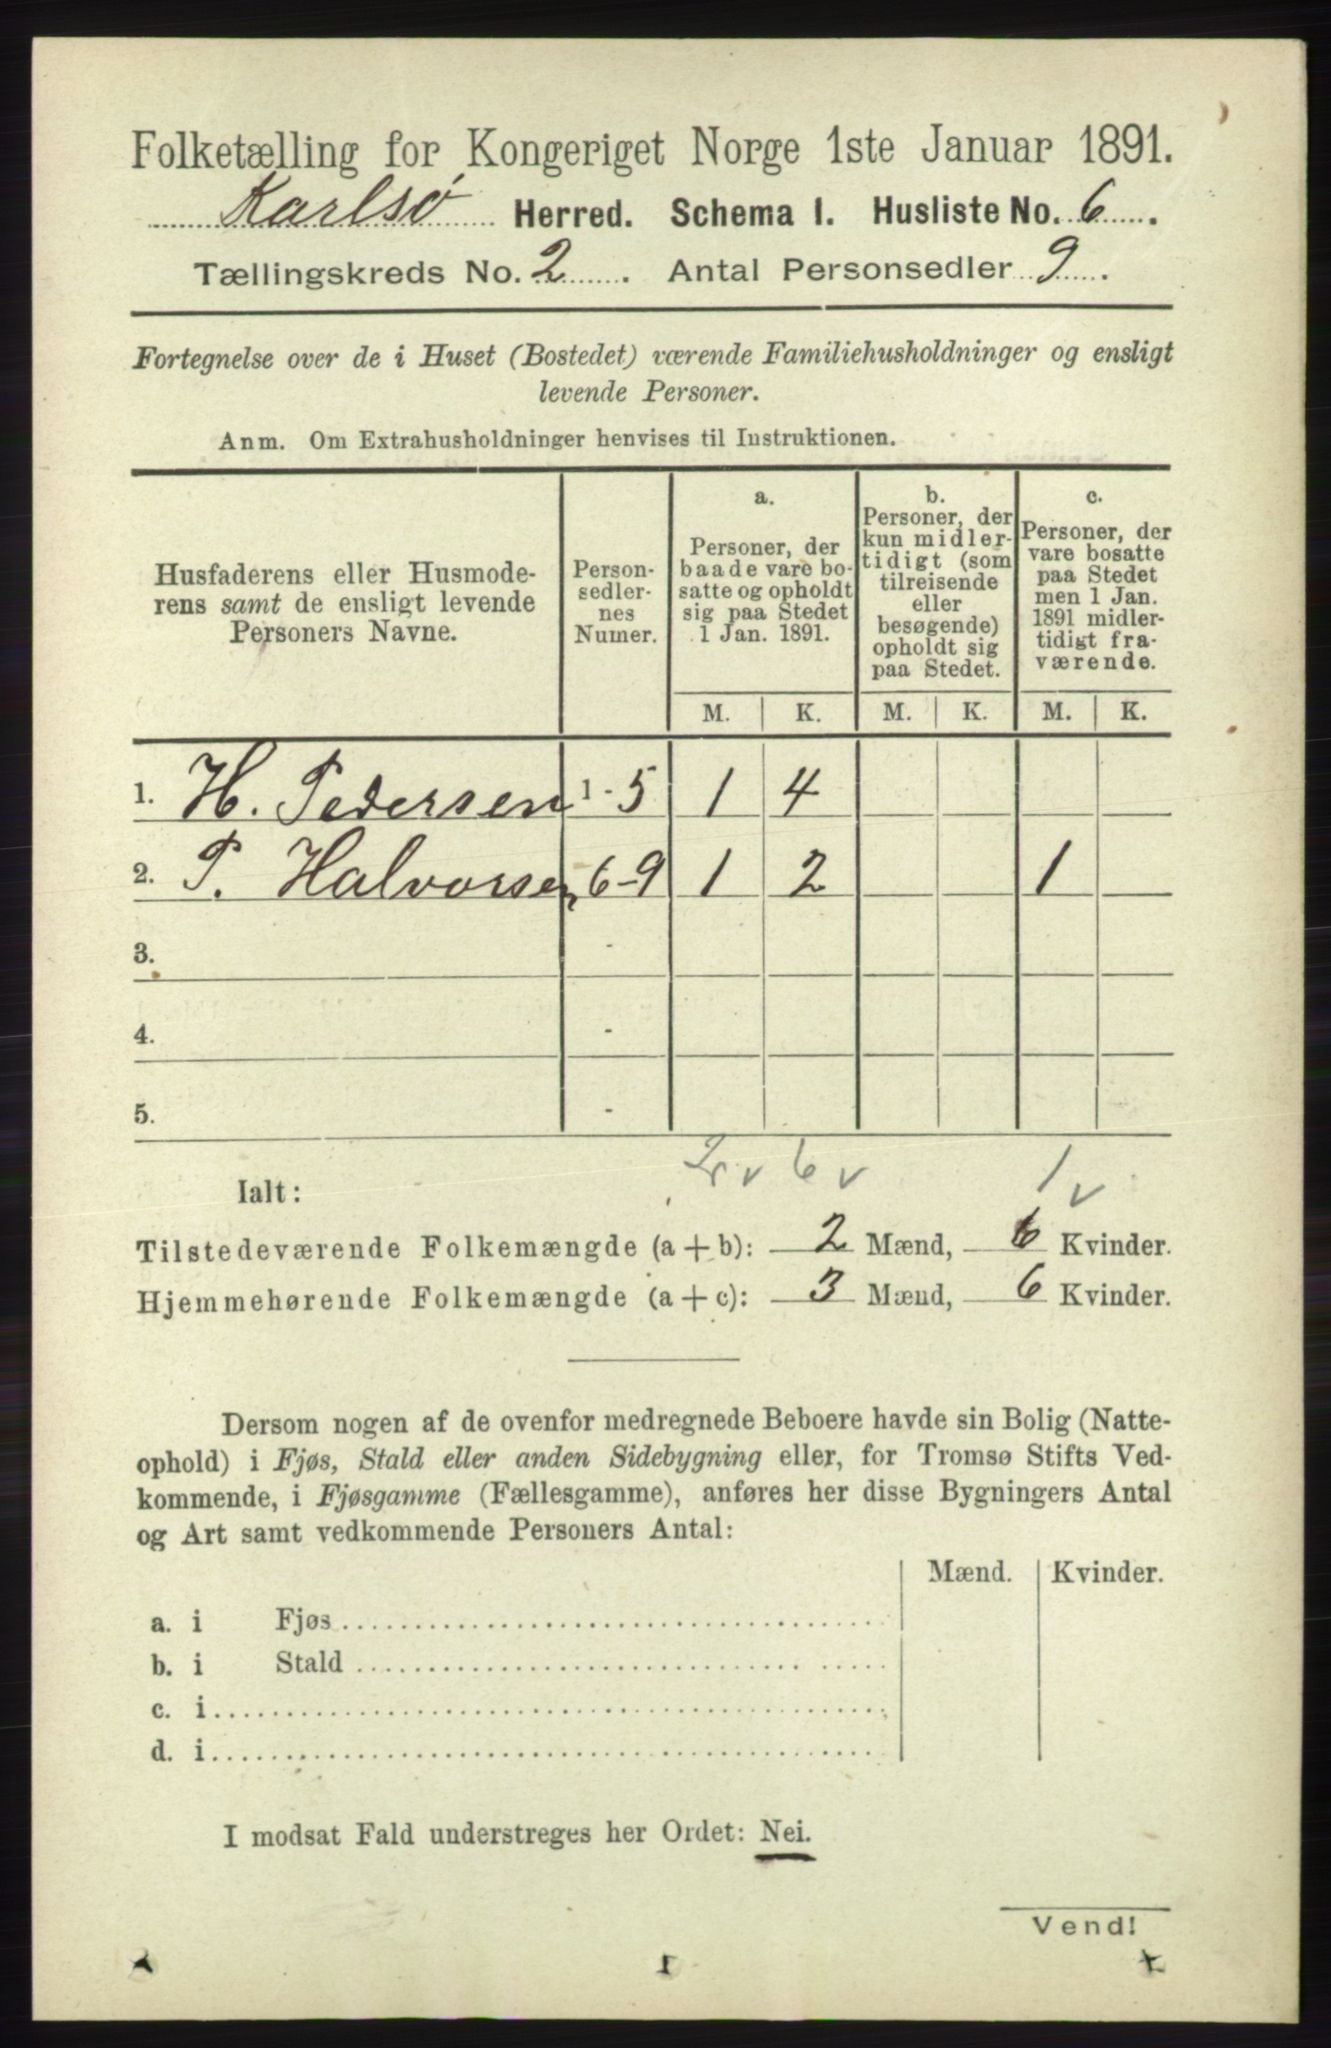 Folketælling for Kongeriget Norge 1ste Januar 1891.
Karlsø Herred. Schema I. Husliste No. 6.
Tællingskreds No. 2. Antal Personsedler 9.
Fortegnelse over de i Huset (Bostedet) værende Familiehusholdninger og ensligt
levende Personer.
Anm. Om Extrahusholdninger henvises til Instruktionen.
Husfaderens eller Husmode-
rens samt de ensligt levende
Personers Navne.
Person-
sedler-
nes
Numer.
a.
Personer, der
baade vare bo-
satte og opholdt
sig paa Stedet
1 Jan. 1891.
b.
Personer, der
kun midler-
tidigt (som
tilreisende
eller
besøgende)
opholdt sig
paa Stedet.
c.
Personer, der
vare bosatte
paa Stedet
men 1 Jan.
1891 midler-
tidigt fra-
værende.
M. K. M. K. M. K.
1. H. Pedersen 1-5 1 4
2. P. Halvorsen 6-9 1 2 1
3. -
4. -
5. -
2 v 6 v 1 v
Ialt:
Tilstedeværende Folkemængde (a + b): 2 Mænd, 6 Kvinder.
Hjemmehørende Folkemængde (a + c): 3 Mænd, 6 Kvinder.
Dersom nogen af de ovenfor medregnede Beboere havde sin Bolig (Natte-
ophold) i Fjøs, Stald eller anden Sidebygning eller, for Tromsø Stifts Ved-
kommende, i Fjøsgamme (Fællesgamme), anføres her disse Bygningers Antal
og Art samt vedkommende Personers Antal:
Mænd. Kvinder.
a. i Fjøs
b. i Stald
c. i
d. i
I modsat Fald understreges her Ordet: Nei.
Vend!
1